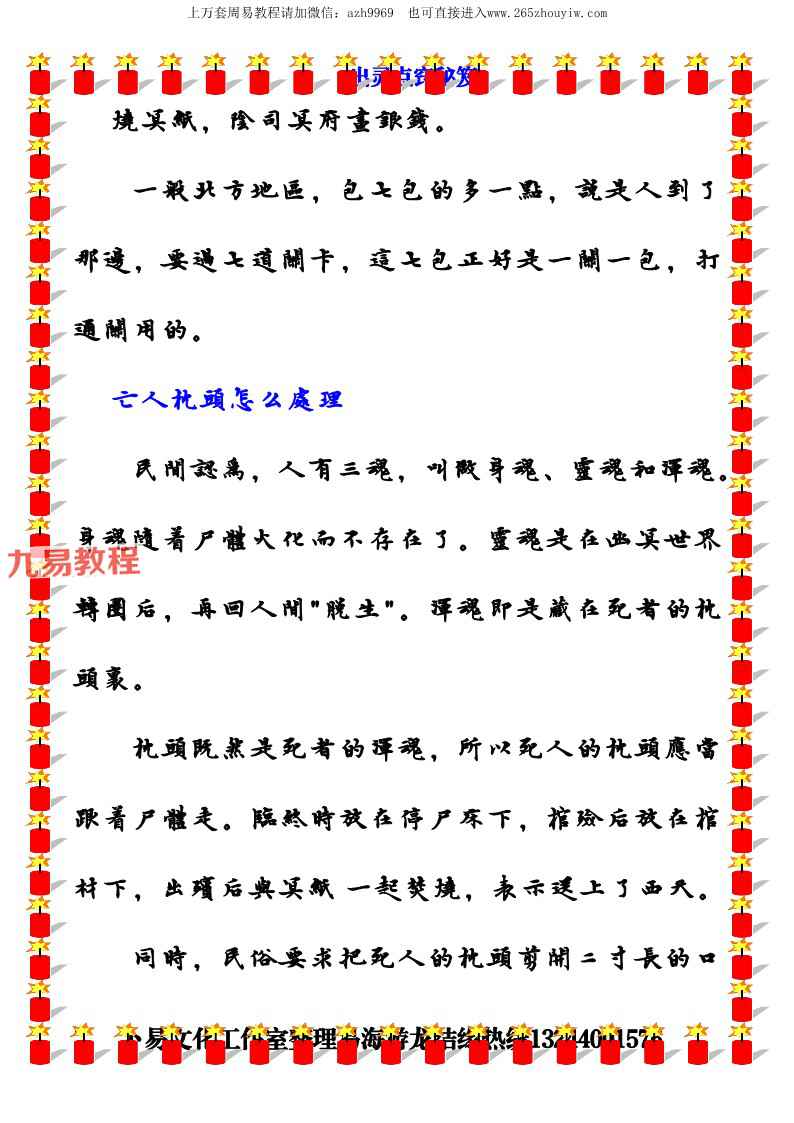 上万套周易教程请加微信：azh9969 也可直接进入www.265zhouyiw.com
燒冥紙，陰司冥府畫銀錢。
一般北方地區，包七包的多一點，說是人到了
那邊，要過七道關卡，這七包正好是一關一包，打
通關用的。
亡人枕頭怎么處理
民間認爲，人有三魂，叫做身魂、靈魂和渾魂。
身魂隨着尸體火化而不存在了。靈魂是在幽冥世界
九易教程
轉圈后，再回人間"脫生"。渾魂即是藏在死者的枕
頭裏。
枕頭既然是死者的渾魂，所以死人的枕頭應當
跟着尸體走。臨終時放在停尸床下，棺殮后放在棺
材下，出殯后與冥紙一起焚燒，表示送上了西天。
同時，民俗要求把死人的枕頭剪開二寸長的口